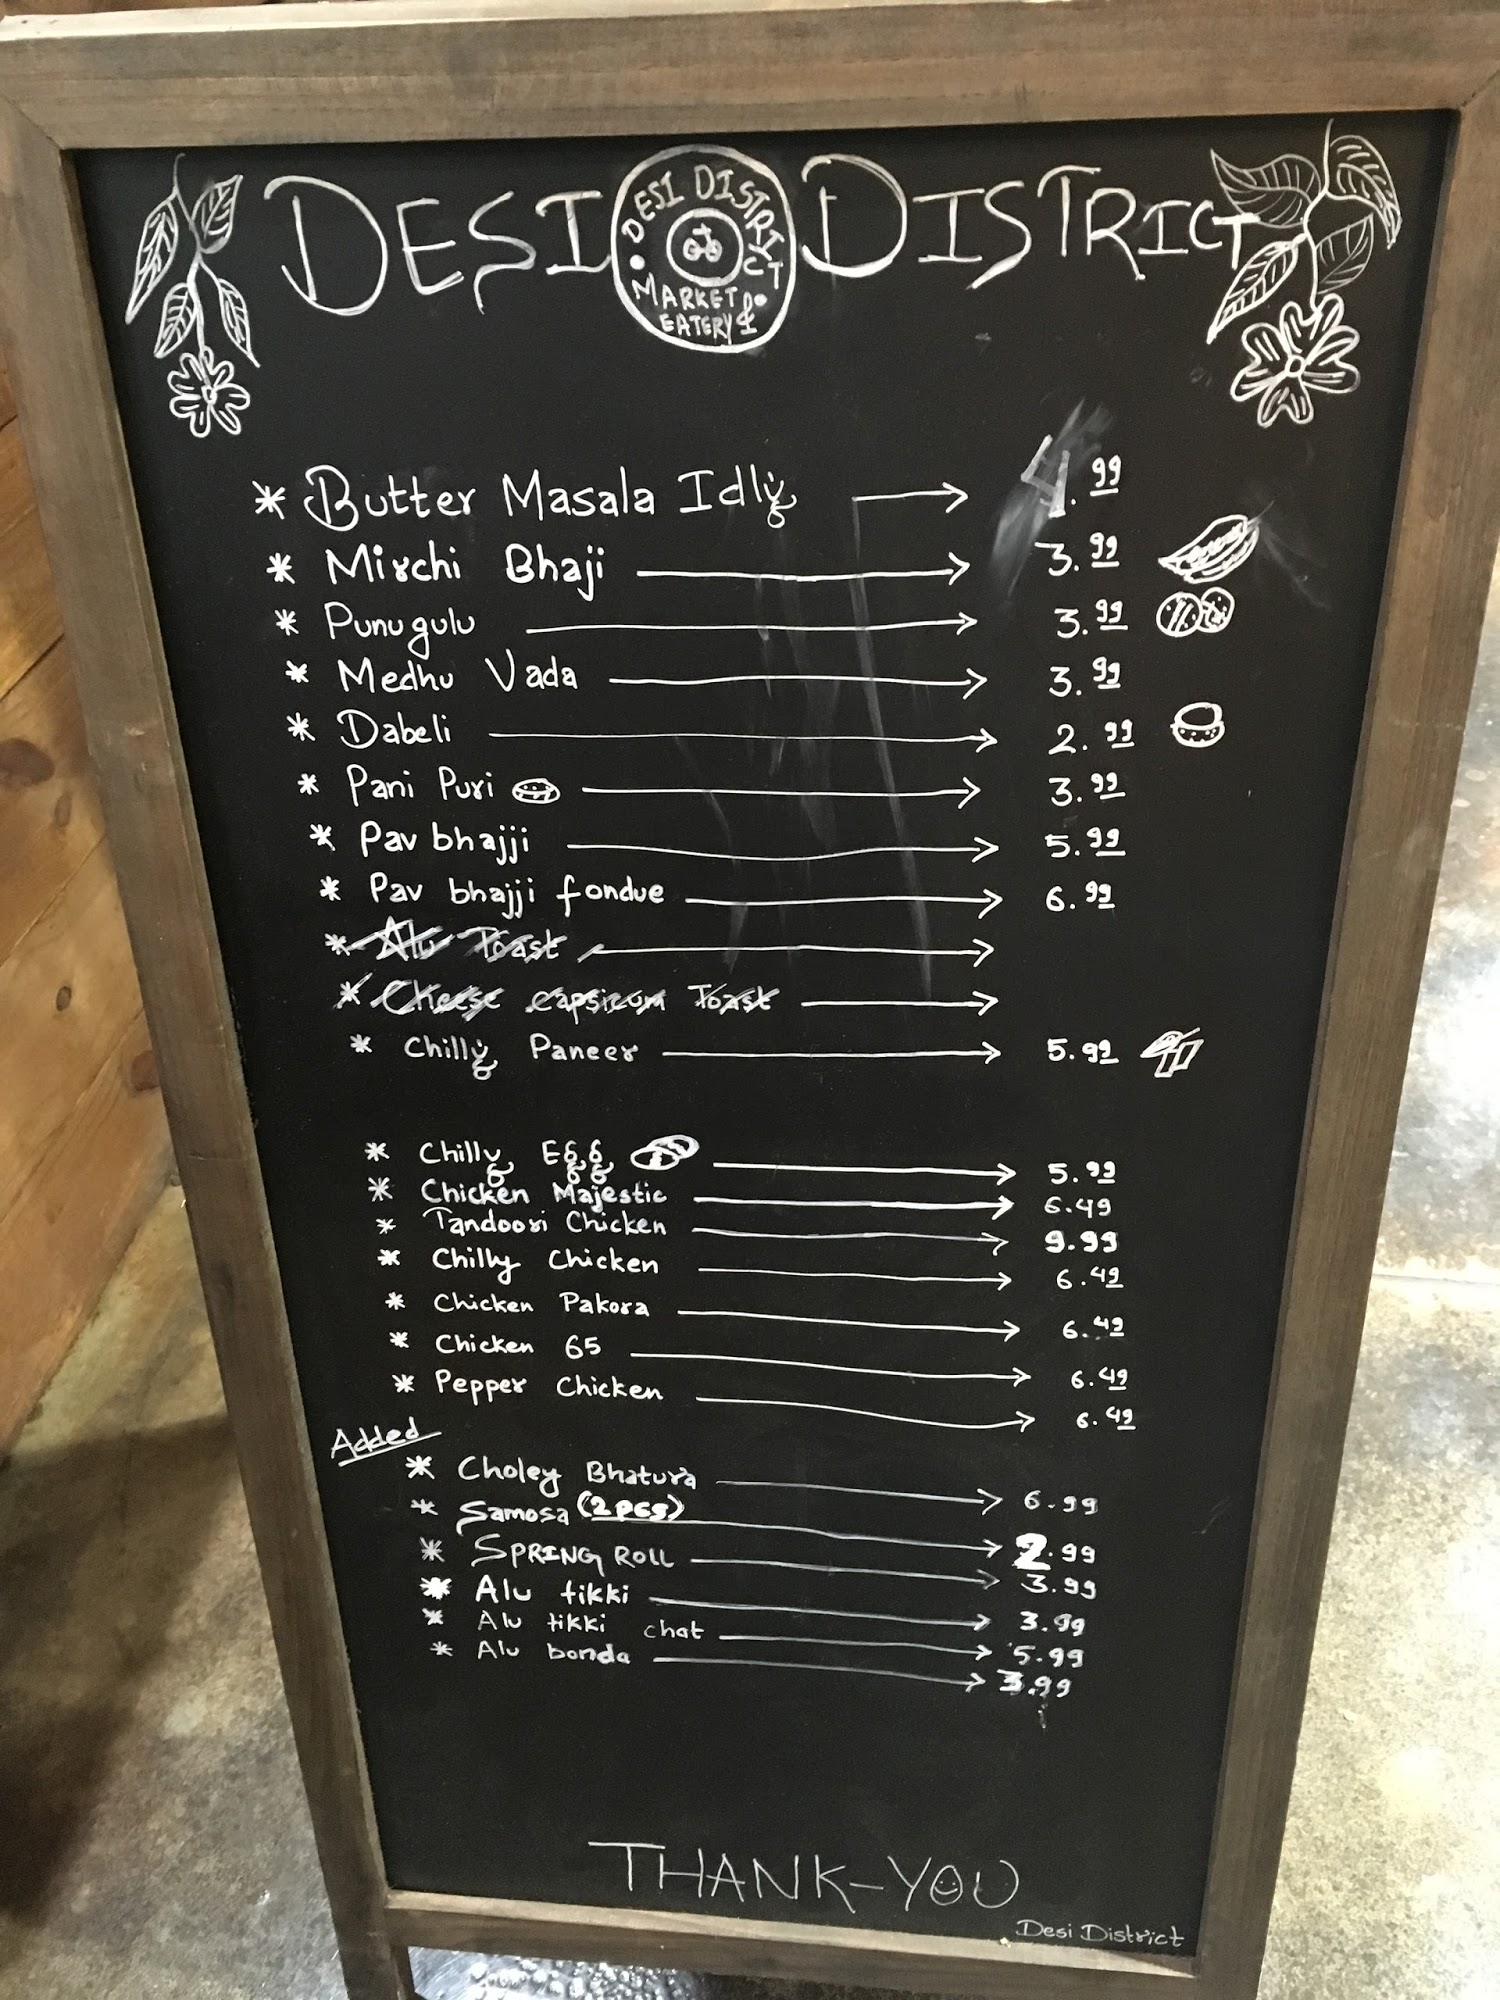 DESI DISTRICT
DESI DISTRICT
MARKET &
EATERY
* Butter Masala Idly → 4.99
* Mirchi Bhaji → 3.99
* Punugulu → 3.99
* Medhu Vada → 3.99
* Dabeli → 2.99
* Pani Puri → 3.99
* Pav bhajji → 5.99
* Pav bhajji fondue → 6.99
* Alu Toast →
* Cheese capsicum Toast →
* Chilly Paneer → 5.99
* Chilly Egg → 5.99
* Chicken Majestic → 6.49
* Tandoori Chicken → 9.99
* Chilly Chicken → 6.49
* Chicken Pakora → 6.49
* Chicken 65 → 6.49
* Pepper Chicken → 6.49
Added
* Choley Bhatura → 6.99
* Samosa (2 pcs) → 2.99
* SPRING ROLL → 3.99
* Alu tikki → 3.99
* Alu tikki chat → 5.99
* Alu bonda → 3.99
THANK-YOU
Desi District